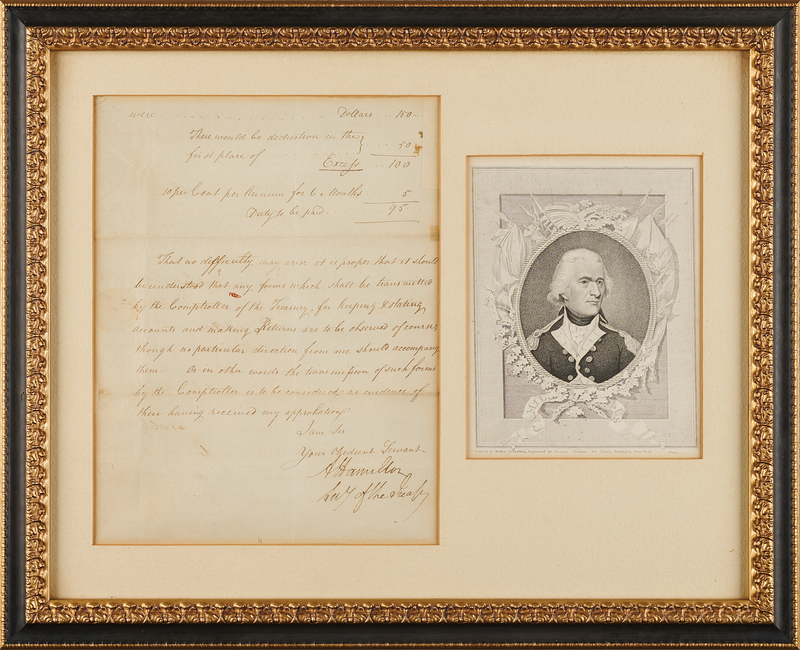 were . . . . . . . . . . Dollars . . 150 -
There would be deduction in the }
first place of . . . . . 50
Excess . . 100
10 per Cent per Annum for 6 Months . . . 5
Duty to be paid . . . 95
That no difficulty may arise it is proper that it should
be understood that any forms which shall be transmitted
by the Comptroller of the Treasury, for keeping & stating
accounts and making Returns are to be observed of course,
though no particular direction from me should accompany
them. Or in other words the transmission of such forms
by the Comptroller is to be considered as evidence of
their having received my approbation
I am Sir
Your Obedient Servant
A Hamilton
Secy of the Treasy